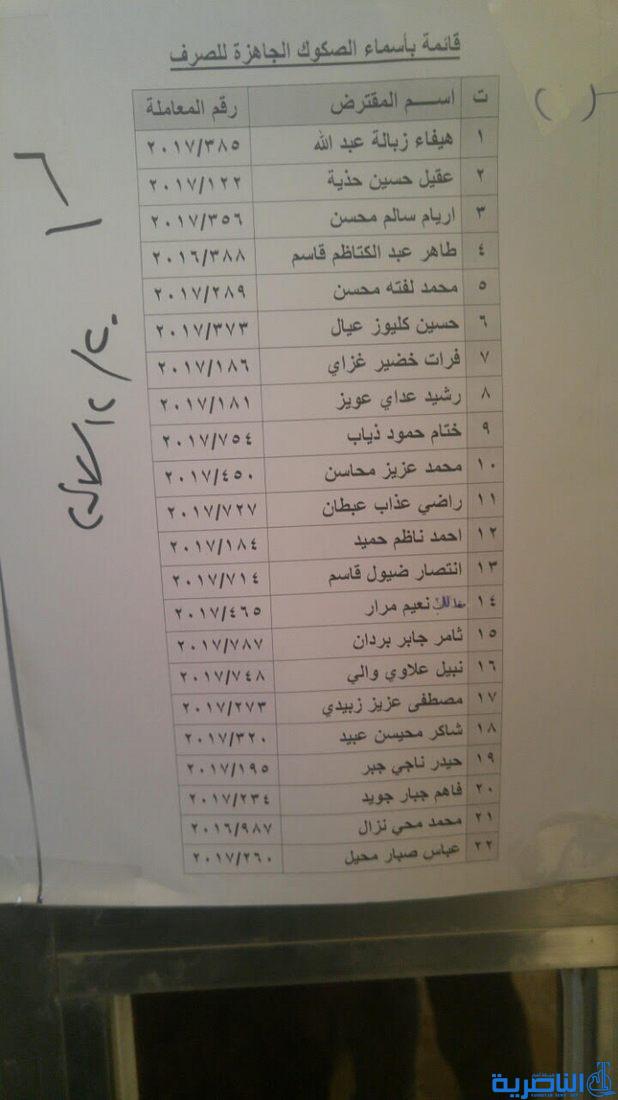 قائمة بأسماء الصكوك الجاهزة للصرف
ت أســـم المقترض رقم المعاملة
١ هيفاء زبالة عبد الله ٢٠١٧/٣٨٥
٢ عقيل حسين حذية ٢٠١٧/١٢٢
٣ اريام سالم محسن ٢٠١٧/٣٥٦
٤ طاهر عبد الكتاظم قاسم ٢٠١٦/٣٨٨
٥ محمد لفته محسن ٢٠١٧/٢٨٩
٦ حسين كليوز عيال ٢٠١٧/٣٧٣
٧ فرات خضير غزاي ٢٠١٧/١٨٦
٨ رشيد عداي عويز ٢٠١٧/١٨١
٩ ختام حمود ذياب ٢٠١٧/٧٥٤
١٠ محمد عزيز محاسن ٢٠١٧/٤٥٠
١١ راضي عذاب عبطان ٢٠١٧/٧٢٧
١٢ احمد ناظم حميد ٢٠١٧/١٨٤
١٣ انتصار ضيول قاسم ٢٠١٧/٧١٤
١٤ نعيم مرار ٢٠١٧/٤٦٥
١٥ ثامر جابر بردان ٢٠١٧/٧٨٧
١٦ نبيل علاوي والي ٢٠١٧/٧٤٨
١٧ مصطفى عزيز زبيدي ٢٠١٧/٢٧٣
١٨ شاكر محيسن عبيد ٢٠١٧/٣٢٠
١٩ حيدر ناجي جبر ٢٠١٧/١٩٥
٢٠ فاهم جبار جويد ٢٠١٧/٢٣٤
٢١ محمد محي نزال ٢٠١٦/٩٨٧
٢٢ عباس صبار محيل ٢٠١٧/٢٦٠
الناصرية